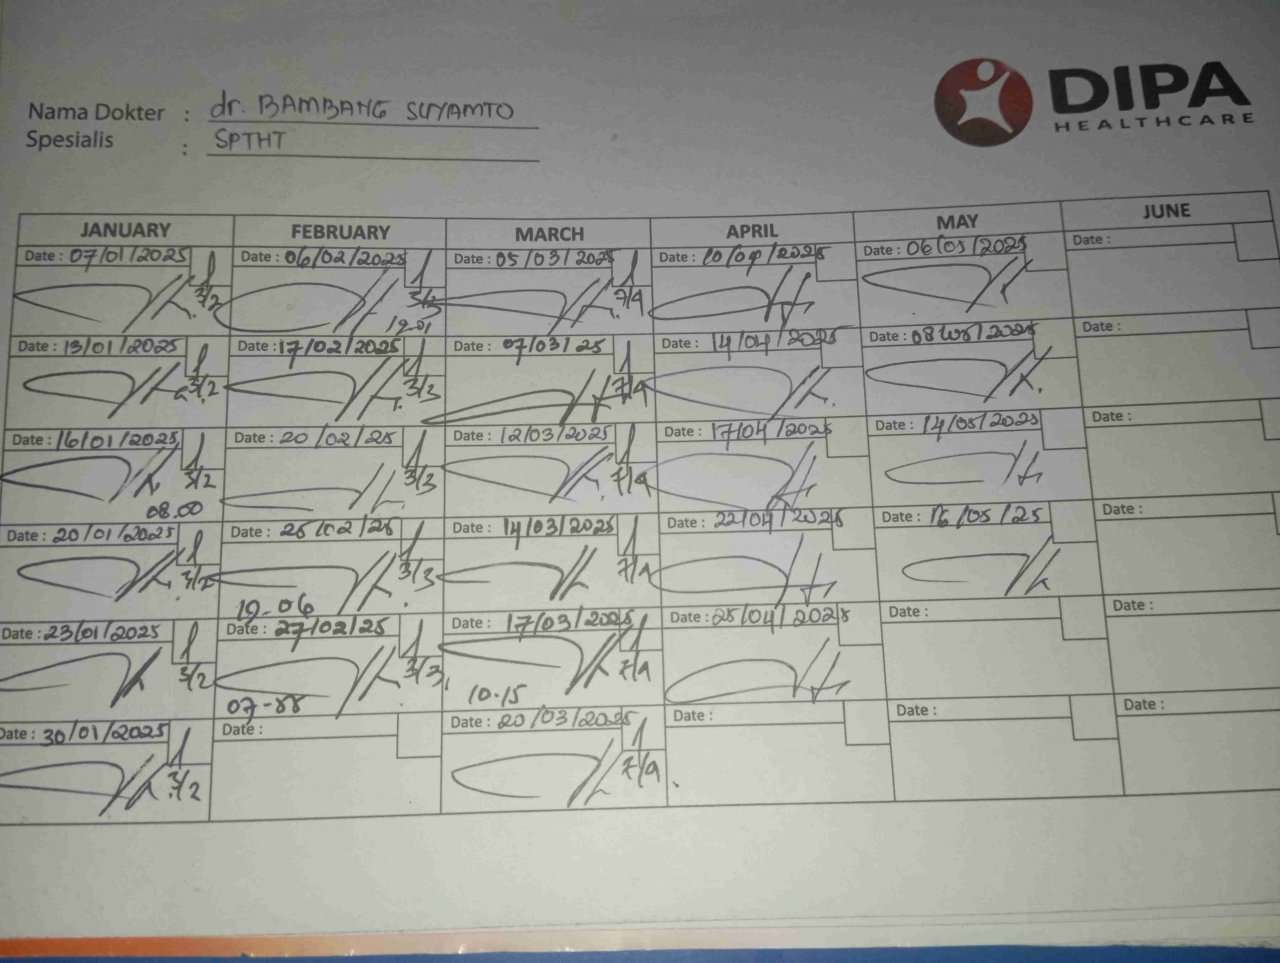 DIPA
HEALTHCARE
Nama Dokter : dr. BAMBANG SUYAMTO
Spesialis : SPTHT
JANUARY FEBRUARY MARCH APRIL MAY JUNE
Date : 07/01/2025 Date : 06/02/2025 Date : 05/03/2025 Date : 10/04/2025 Date : 06/05/2025 Date :
3/2 3/3 7/4
19.01
Date : 13/01/2025 Date : 17/02/2025 Date : 07/03/25 Date : 14/04/2025 Date : 08/05/2025 Date :
3/2 3/3 7/4
Date : 16/01/2025 Date : 20/02/25 Date : 12/03/2025 Date : 17/04/2025 Date : 14/05/2025 Date :
3/2 3/3 7/4
08.00
Date : 20/01/2025 Date : 25/02/25 Date : 14/03/2025 Date : 22/04/2025 Date : 16/05/25 Date :
3/2 3/3 7/4
19.06
Date : 23/01/2025 Date : 27/02/25 Date : 17/03/2025 Date : 25/04/2025 Date : Date :
3/2 3/3 7/4
10.15
Date : 30/01/2025 Date : Date : 20/03/2025 Date : Date : Date :
3/2 7/4